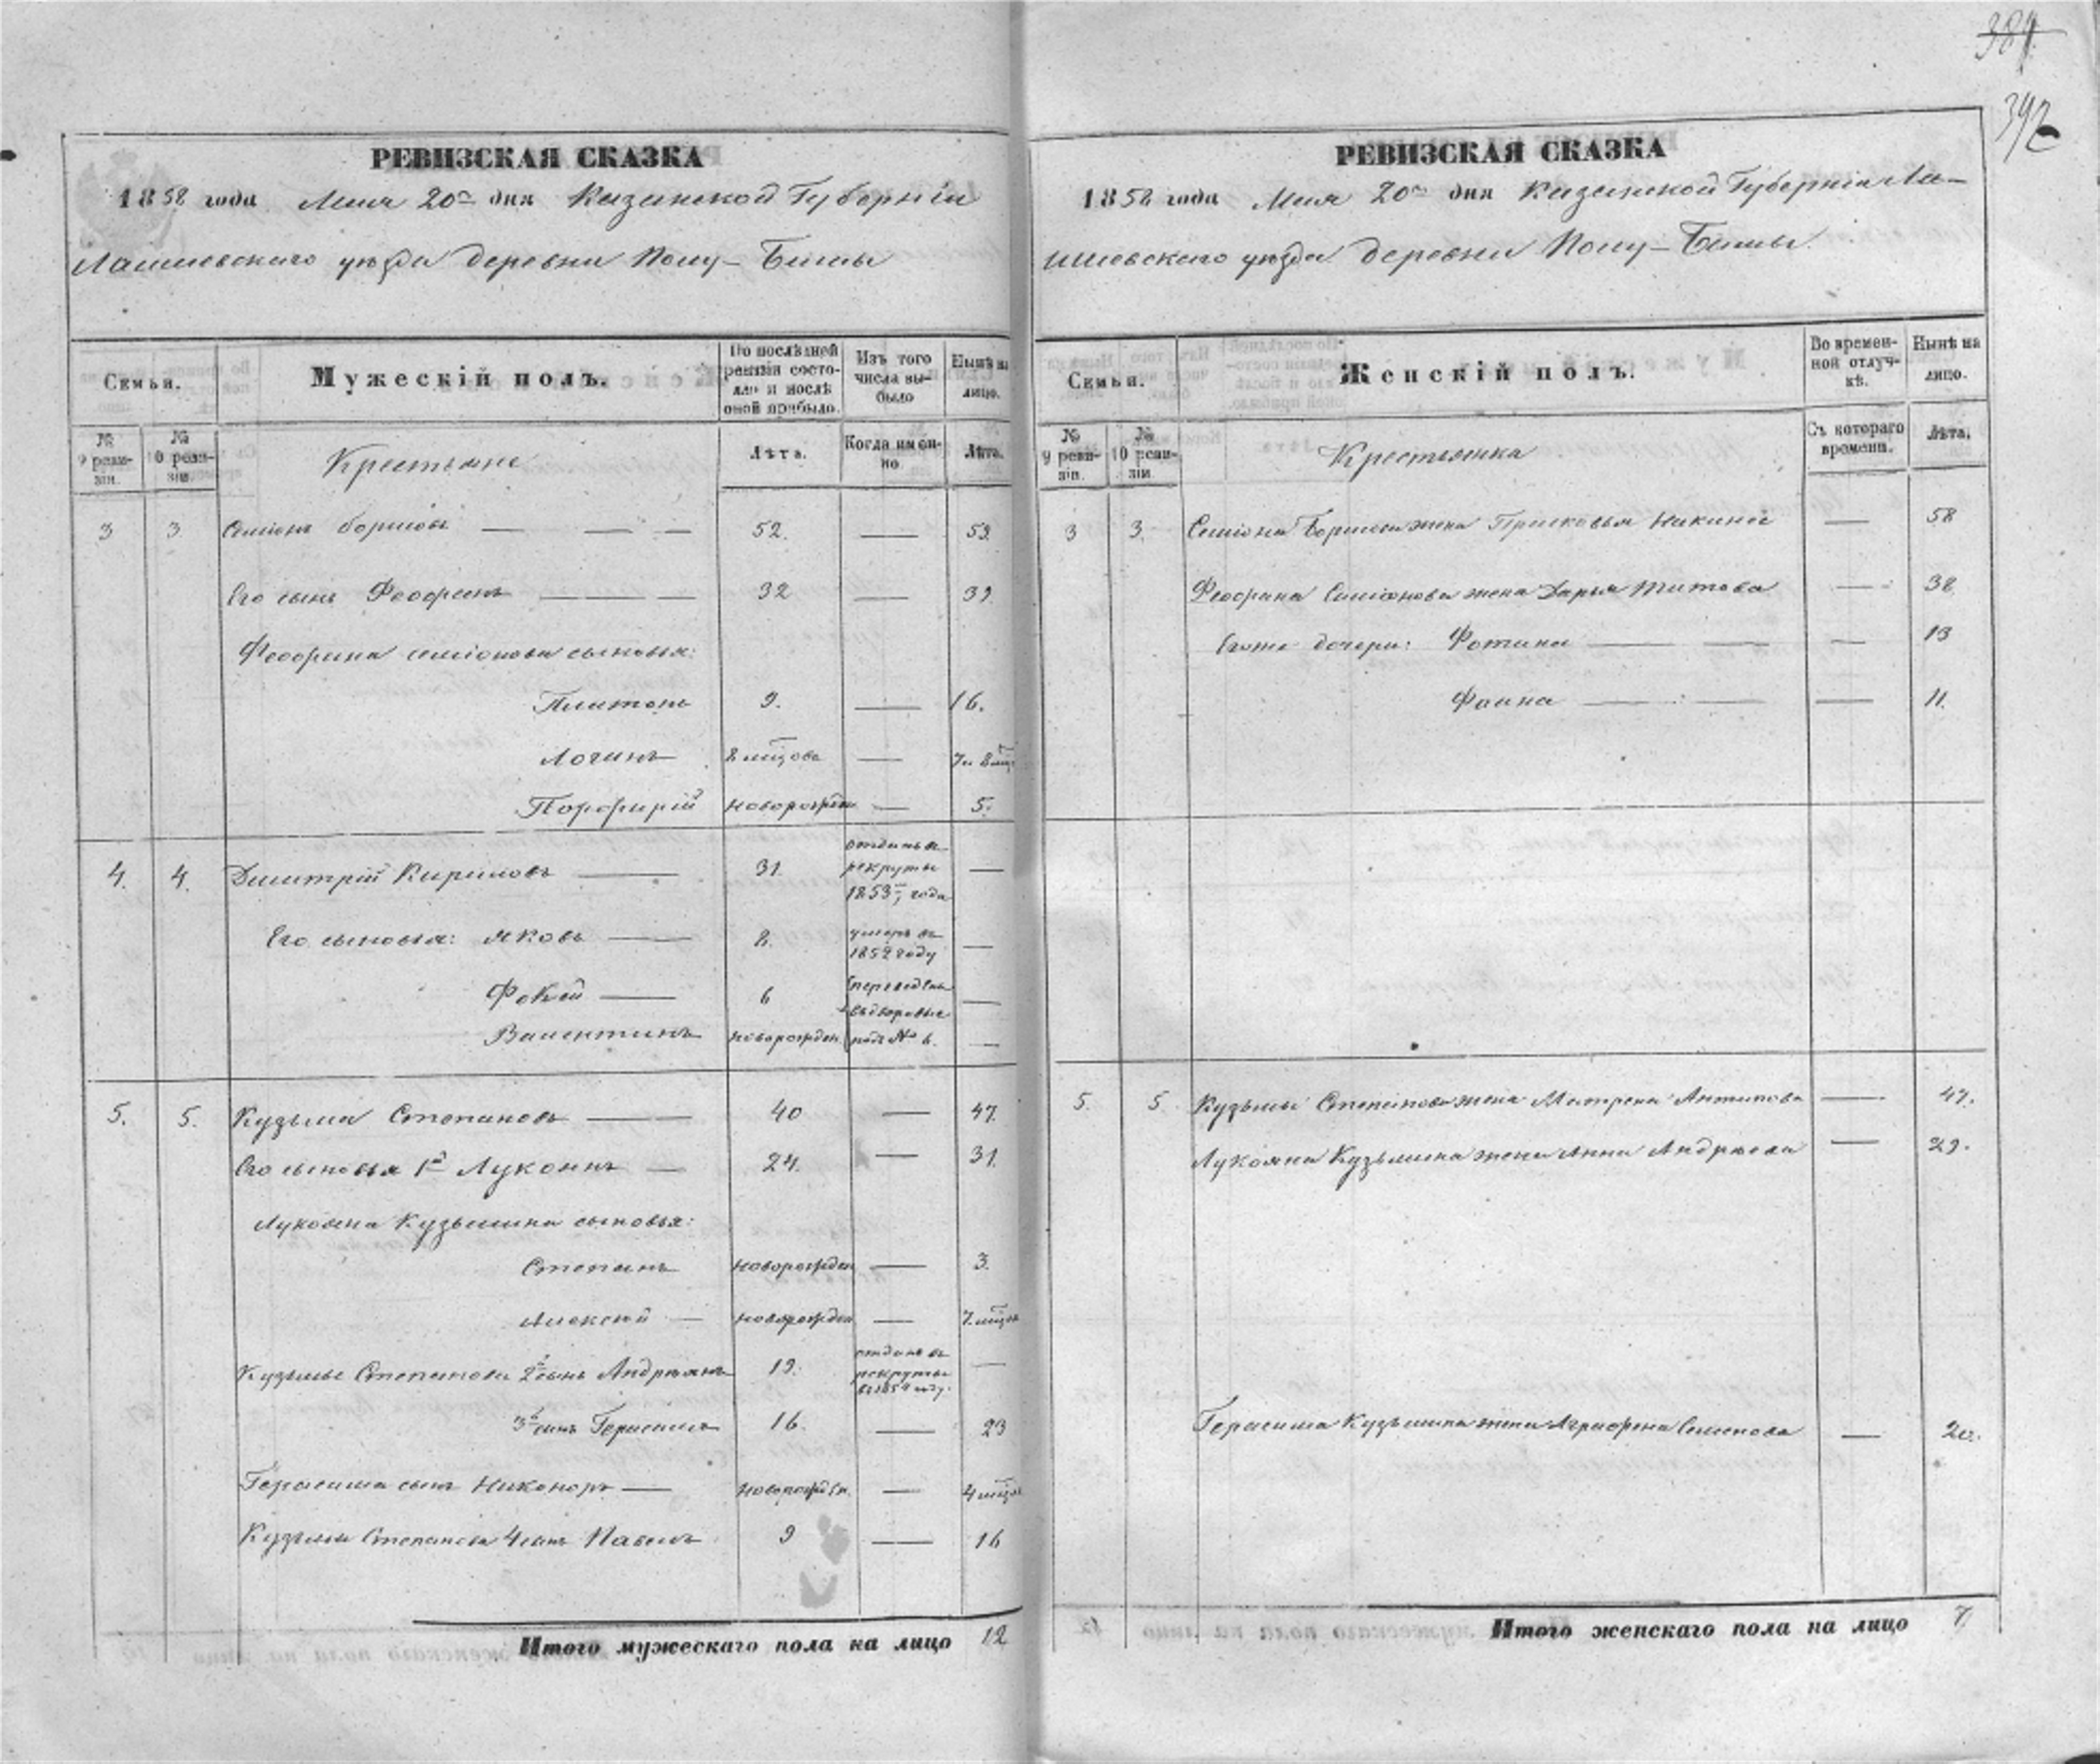 384
392
РЕВИЗСКАЯ СКАЗКА
1858 года Мая 20го дня Казанской Губерніи
Лаишевскаго уѣзда деревни Полу-
Семьи.
Мужескій полъ.
По послѣдней ревизіи состояло и послѣ оной прибыло.
Изъ того числа выбыло
Нынѣ на лицо.
№ 9 ревизіи.
№ 10 ревизіи.
Крестьяне
Лѣта.
Когда именно
Лѣта.
3 3. Семіонъ Борисовъ 52. 59.
Его сынъ Феофанъ 32 39.
Феофана Семіонова сыновья:
Платонъ 9. 16.
Логинъ 8 мѣцовъ 7 и 8 мѣц
Порфирій новорожден 5.
4. 4. Димитрій Кириловъ 31. отданъ въ рекруты 1853 года
Его сыновья: Яковъ 8. умеръ въ 1852 году
Фокей 6 переведены въ дворовые
Валентинъ новорожден. подъ № 6.
5. 5. Кузьма Степановъ 40 47.
Его сыновья 1й Лукоянъ 24. 31.
Лукояна Кузьмина сыновья:
Степанъ новорожден 3.
Алексей новорожден 7. мѣцъ
Кузьмы Степанова 2й сынъ Андреянъ 19. отданъ въ рекруты
3й сынъ Герасимъ 16. 23
Герасима сынъ Никоноръ новорожден. 4 мѣц
Кузьмы Степанова 4 сынъ Павелъ 9 16
Итого мужескаго пола на лицо 12
РЕВИЗСКАЯ СКАЗКА
1858 года Мая 20го дня Казанской Губерніи Ла-
ишевскаго уѣзда деревни Полу-
Семьи.
Женскій полъ.
Во временной отлучкѣ.
Нынѣ на лицо.
№ 9 ревизіи.
№ 10 ревизіи
Крестьянка
Съ котораго времени.
Лѣта.
3 3. Семіона Борисова жена Прасковья 58
Феофана Семіонова жена Дарья Титова 38
Егоже дочери: Фотина 13
Фаина 11.
5. 5. Кузьмы Степанова жена Матрена Антипова 47.
Лукояна Кузьмина жена Анна Андреева 29.
Герасима Кузьмина жена Аграфена Семенова 20.
Итого женскаго пола на лицо 7